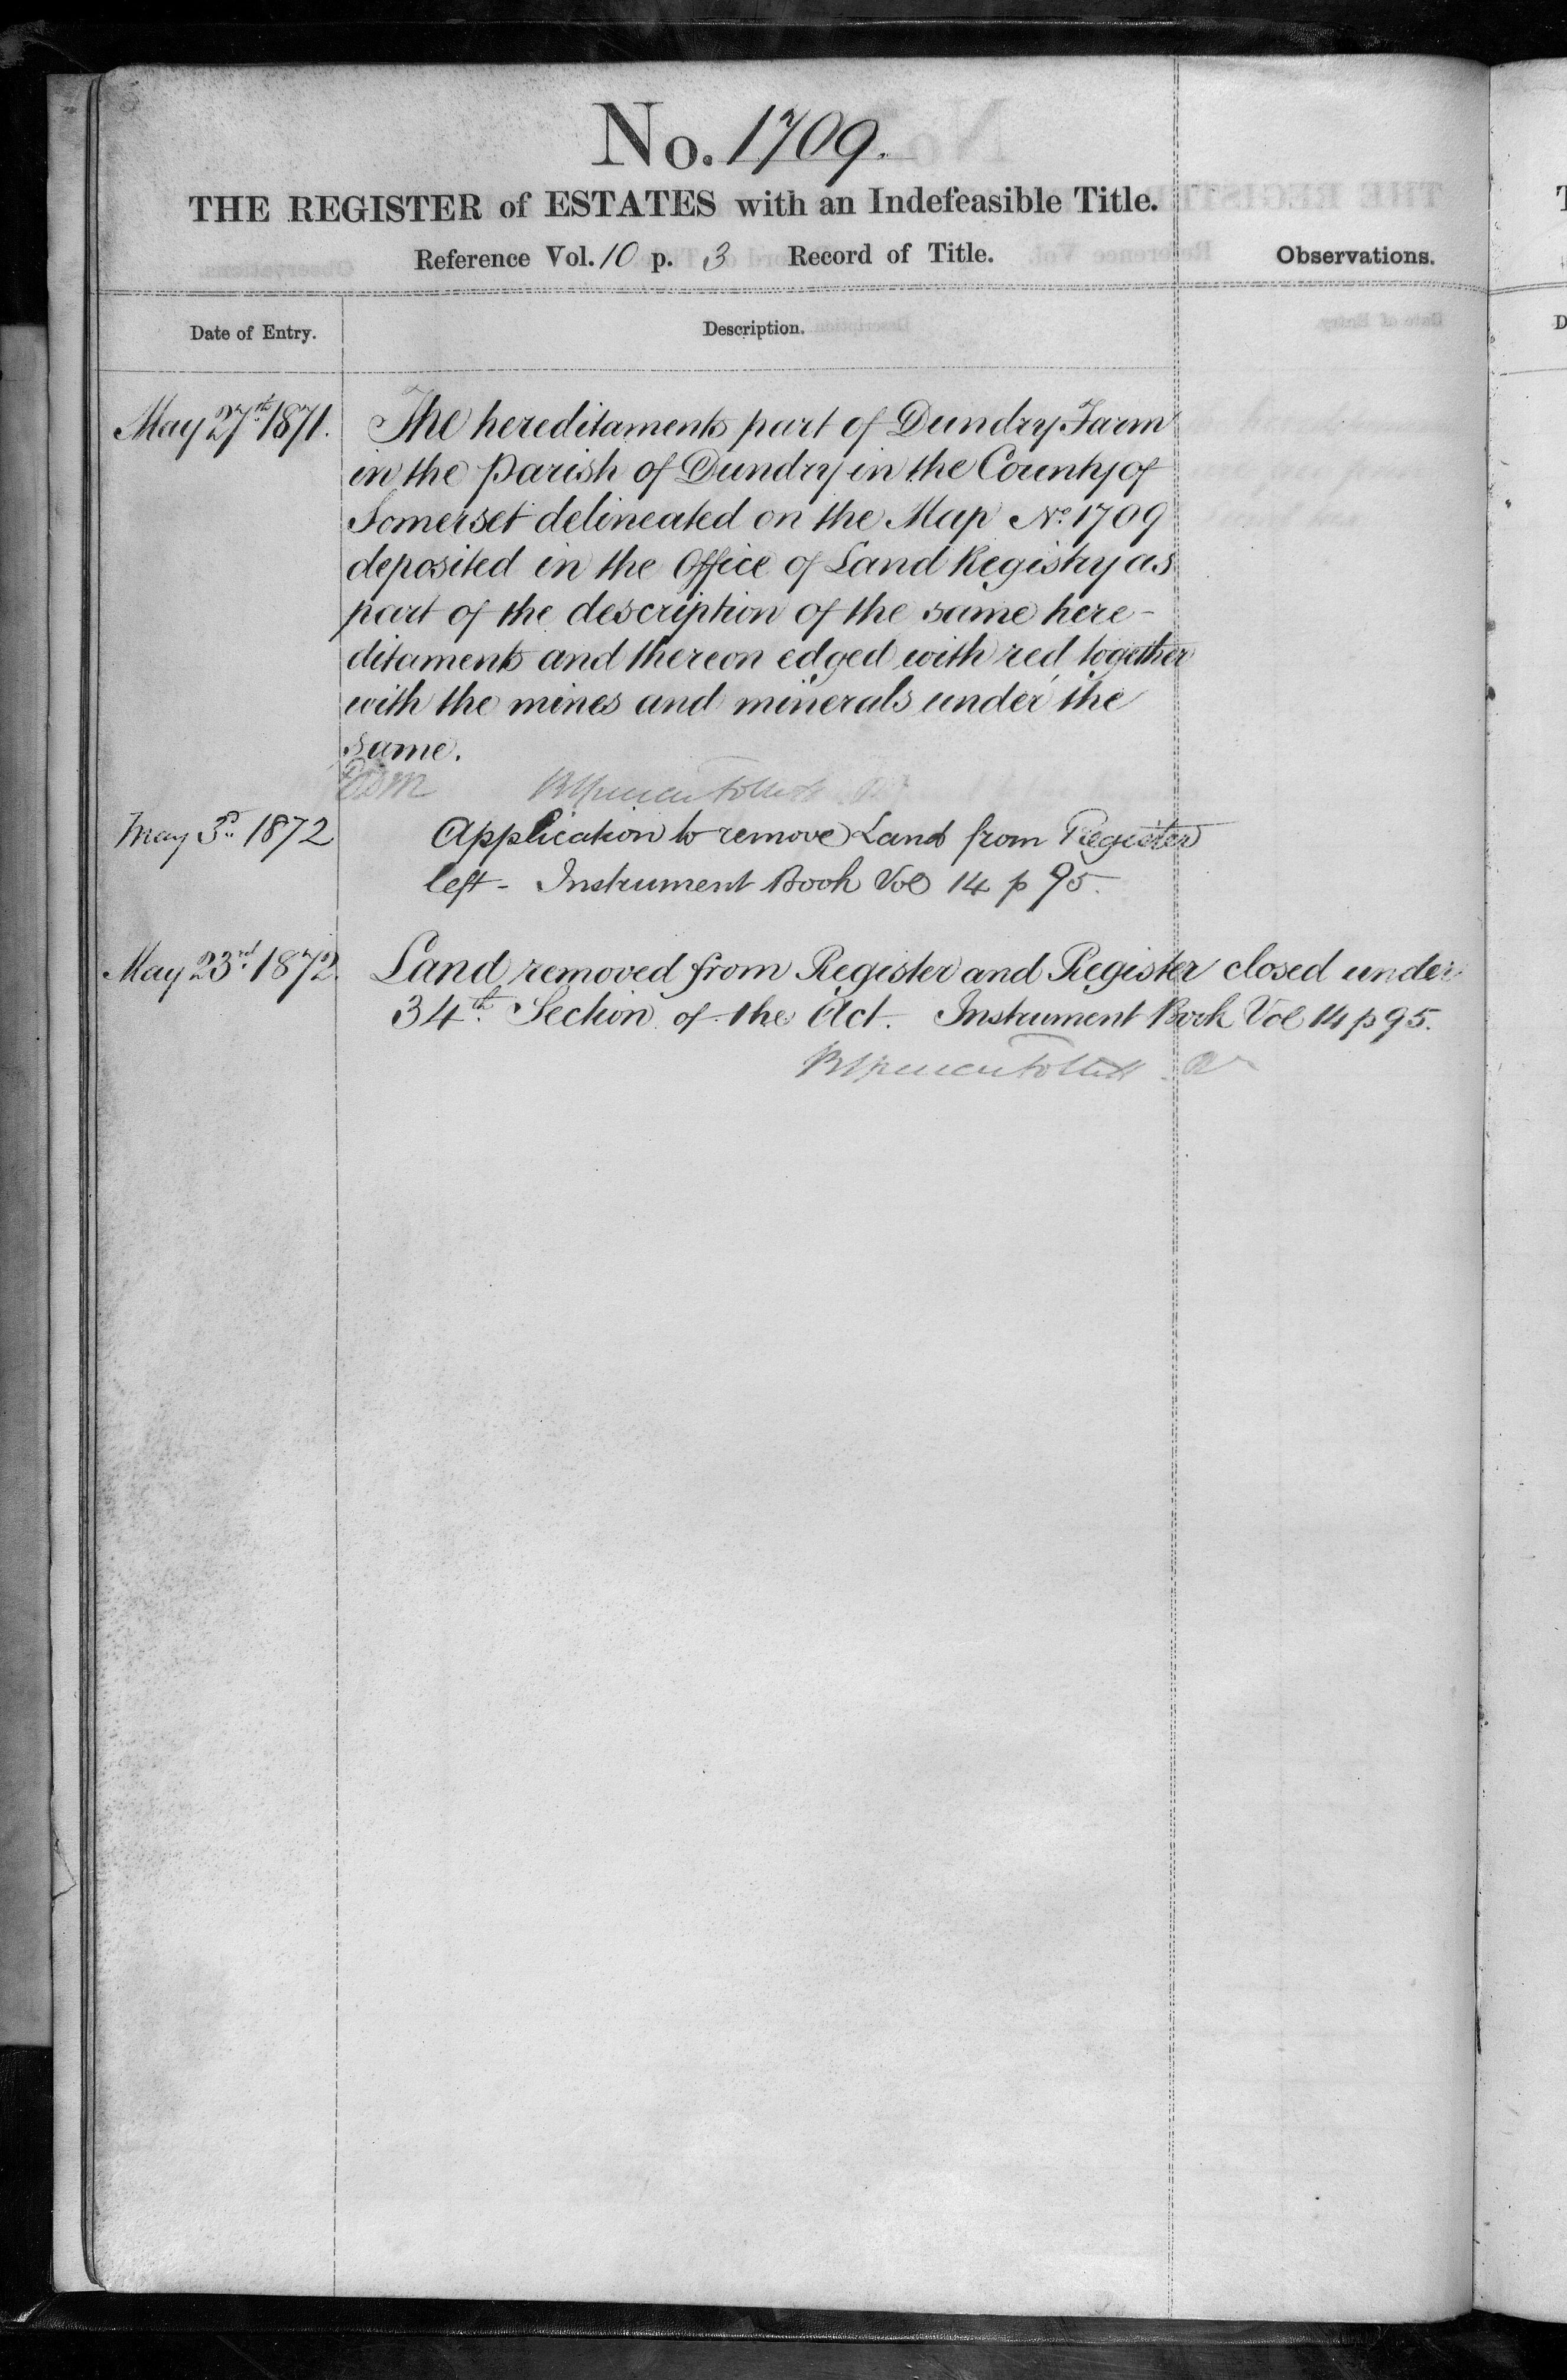 No. 1709.
THE REGISTER of ESTATES with an Indefeasible Title.
Reference Vol. 10 p. 3 Record of Title.
Observations.
Date of Entry.
Description.
May 27th 1871. The hereditaments part of Dundry Farm
in the Parish of Dundry in the County of
Somerset delineated on the Map No. 1709
deposited in the Office of Land Registry as
part of the description of the same here-
ditaments and thereon edged with red together
with the mines and minerals under the
same.
May 3rd 1872 Application to remove Land from Register
left - Instrument Book Vol 14 p 95.
May 23rd 1872. Land removed from Register and Register closed under
34th Section of the Act. Instrument Book Vol 14 p 95.